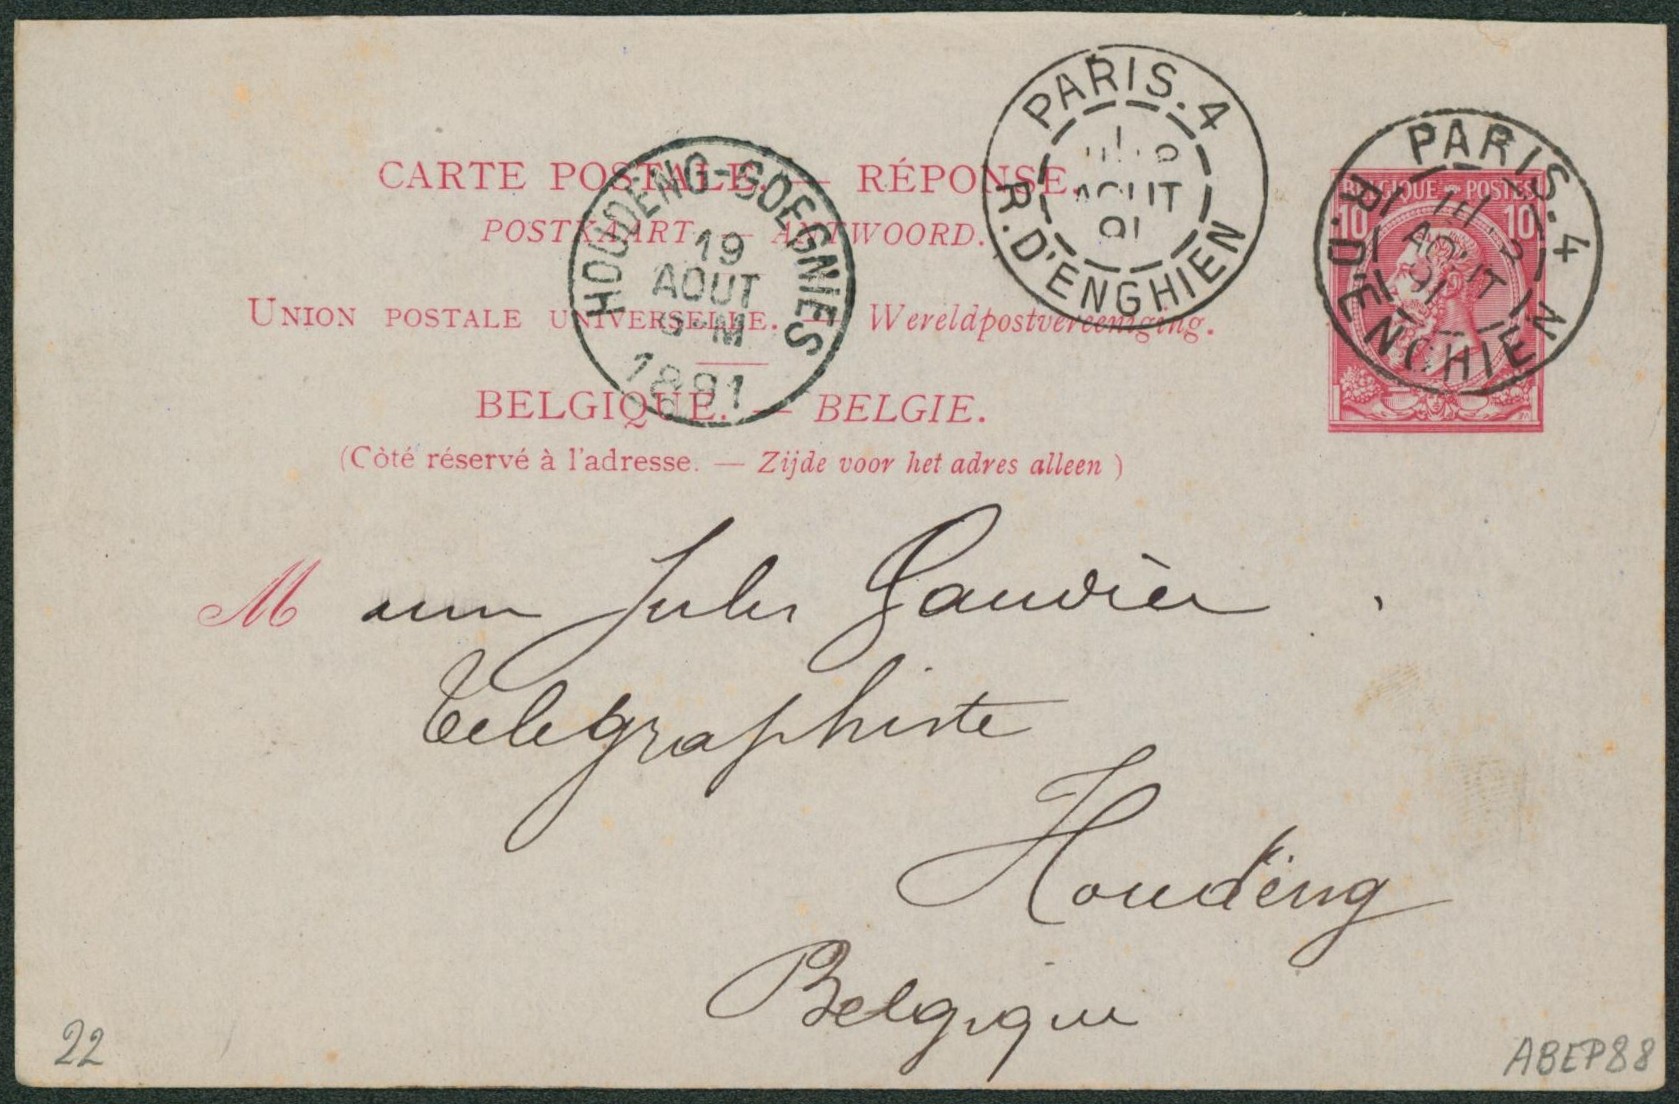 CARTE POSTALE. — RÉPONSE.
POSTKAART — ANTWOORD.
UNION POSTALE UNIVERSELLE. — Wereldpostvereeniging.
BELGIQUE. — BELGIE.
(Côté réservé à l'adresse. — Zijde voor het adres alleen)
HOUDENG-GOEGNIES
19
AOUT
1891
PARIS.4
AOUT
91
R. D'ENGHIEN
BELGIQUE POSTES
10 10
PARIS.4
AOUT
91
R. D'ENGHIEN
M Jules
Telegraphiste
Houdeng
Belgique
22
ABEP88